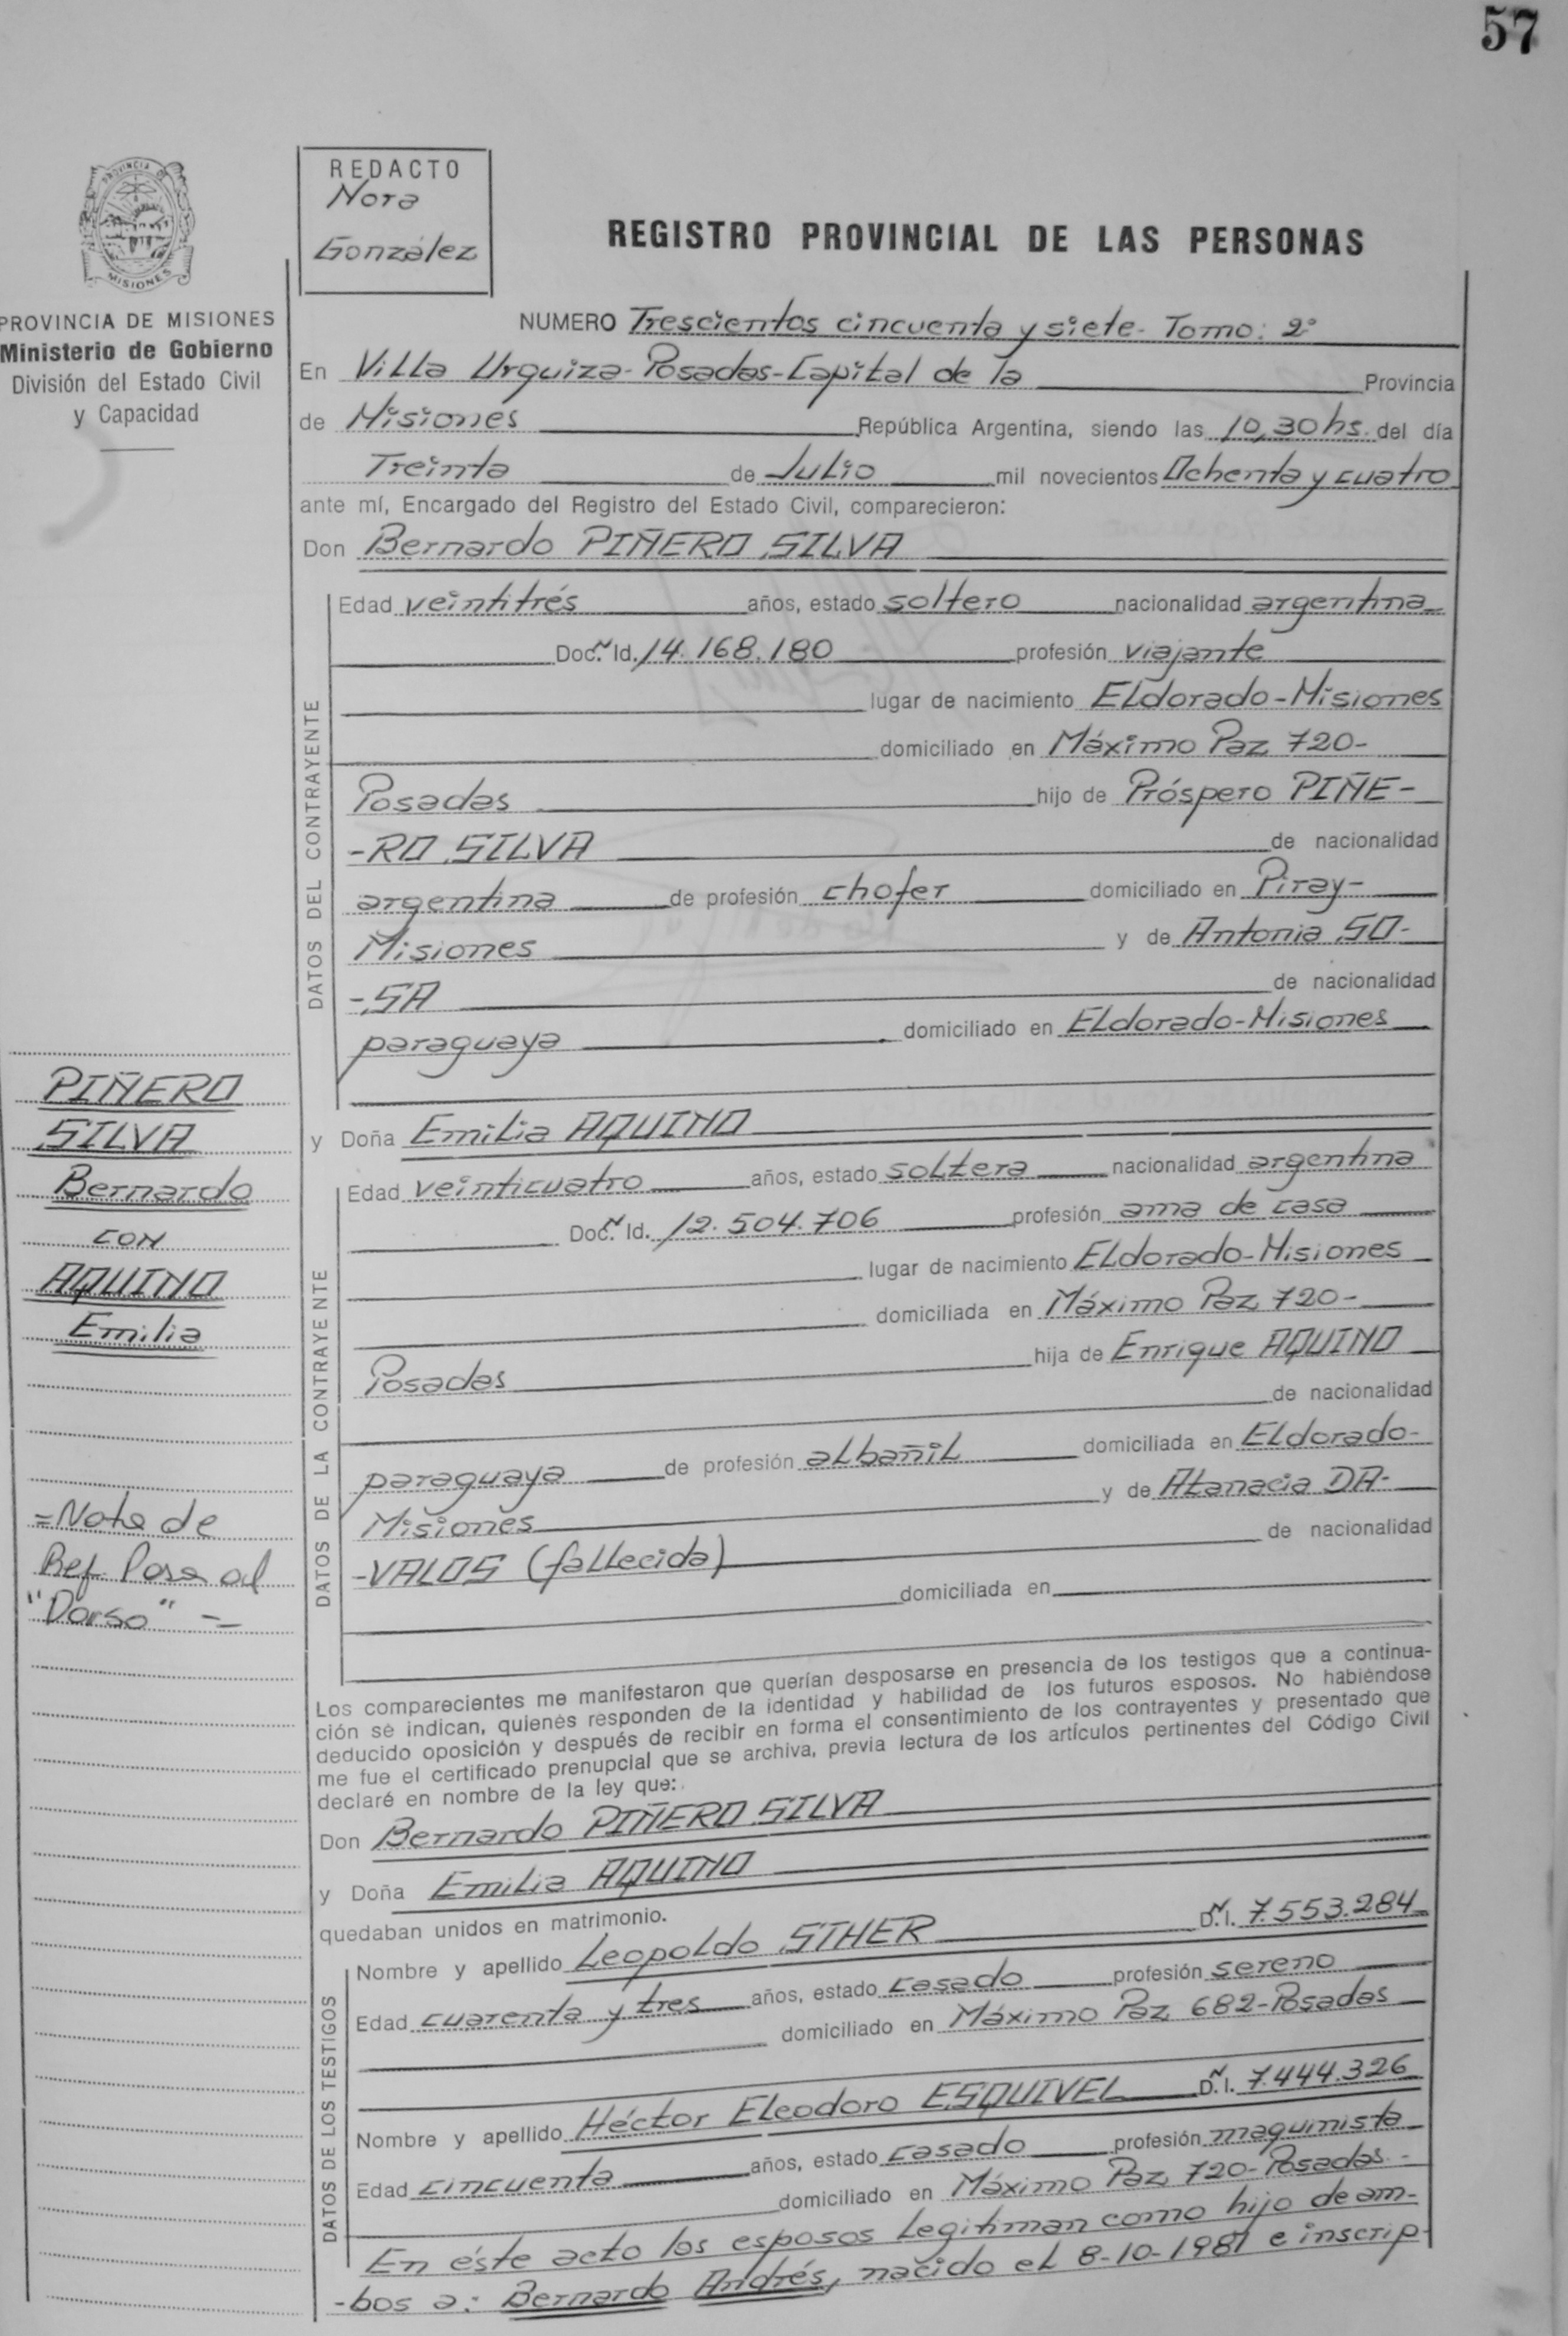 57
PROVINCIA DE
MISIONES
REDACTO
Nora
González
REGISTRO PROVINCIAL DE LAS PERSONAS
PROVINCIA DE MISIONES
Ministerio de Gobierno
División del Estado Civil
y Capacidad
NUMERO Trescientos cincuenta y siete- Tomo: 2º
En Villa Urquiza-Posadas-Capital de la Provincia
de Misiones República Argentina, siendo las 10,30 hs. del día
Treinta de Julio mil novecientos Ochenta y cuatro
ante mí, Encargado del Registro del Estado Civil, comparecieron:
Don Bernardo PIÑERO SILVA
DATOS DEL CONTRAYENTE
Edad veintitrés años, estado soltero nacionalidad argentina
Doc. Id. Nº 14.168.180 profesión viajante
lugar de nacimiento Eldorado-Misiones
domiciliado en Máximo Paz 720-
Posadas hijo de Próspero PIÑE-
-RO SILVA de nacionalidad
argentina de profesión chofer domiciliado en Piray-
Misiones y de Antonia SO-
-SA de nacionalidad
paraguaya domiciliado en Eldorado-Misiones
PIÑERO
SILVA
Bernardo
CON
AQUINO
Emilia
=Nota de
Ref. Pasa al
"Dorso" =
y Doña Emilia AQUINO
DATOS DE LA CONTRAYENTE
Edad veinticuatro años, estado soltera nacionalidad argentina
Doc. Id. Nº 12.504.706 profesión ama de casa
lugar de nacimiento Eldorado-Misiones
domiciliada en Máximo Paz 720-
Posadas hija de Enrique AQUINO
de nacionalidad
paraguaya de profesión albañil domiciliada en Eldorado-
Misiones y de Atanacia DA-
-VALOS (fallecida) de nacionalidad
domiciliada en
Los comparecientes me manifestaron que querían desposarse en presencia de los testigos que a continua-
ción se indican, quienes responden de la identidad y habilidad de los futuros esposos. No habiéndose
deducido oposición y después de recibir en forma el consentimiento de los contrayentes y presentado que
me fue el certificado prenupcial que se archiva, previa lectura de los artículos pertinentes del Código Civil
declaré en nombre de la ley que:
Don Bernardo PIÑERO SILVA
y Doña Emilia AQUINO
quedaban unidos en matrimonio.
DATOS DE LOS TESTIGOS
Nombre y apellido Leopoldo STHER D.N.I. 7.553.284
Edad cuarenta y tres años, estado casado profesión sereno
domiciliado en Máximo Paz 682-Posadas
Nombre y apellido Héctor Eleodoro ESQUIVEL D.N.I. 7.444.326
Edad cincuenta años, estado casado profesión maquinista
domiciliado en Máximo Paz 720-Posadas.-
En éste acto los esposos legitiman como hijo de am-
-bos a: Bernardo Andrés, nacido el 8-10-1981 e inscrip-